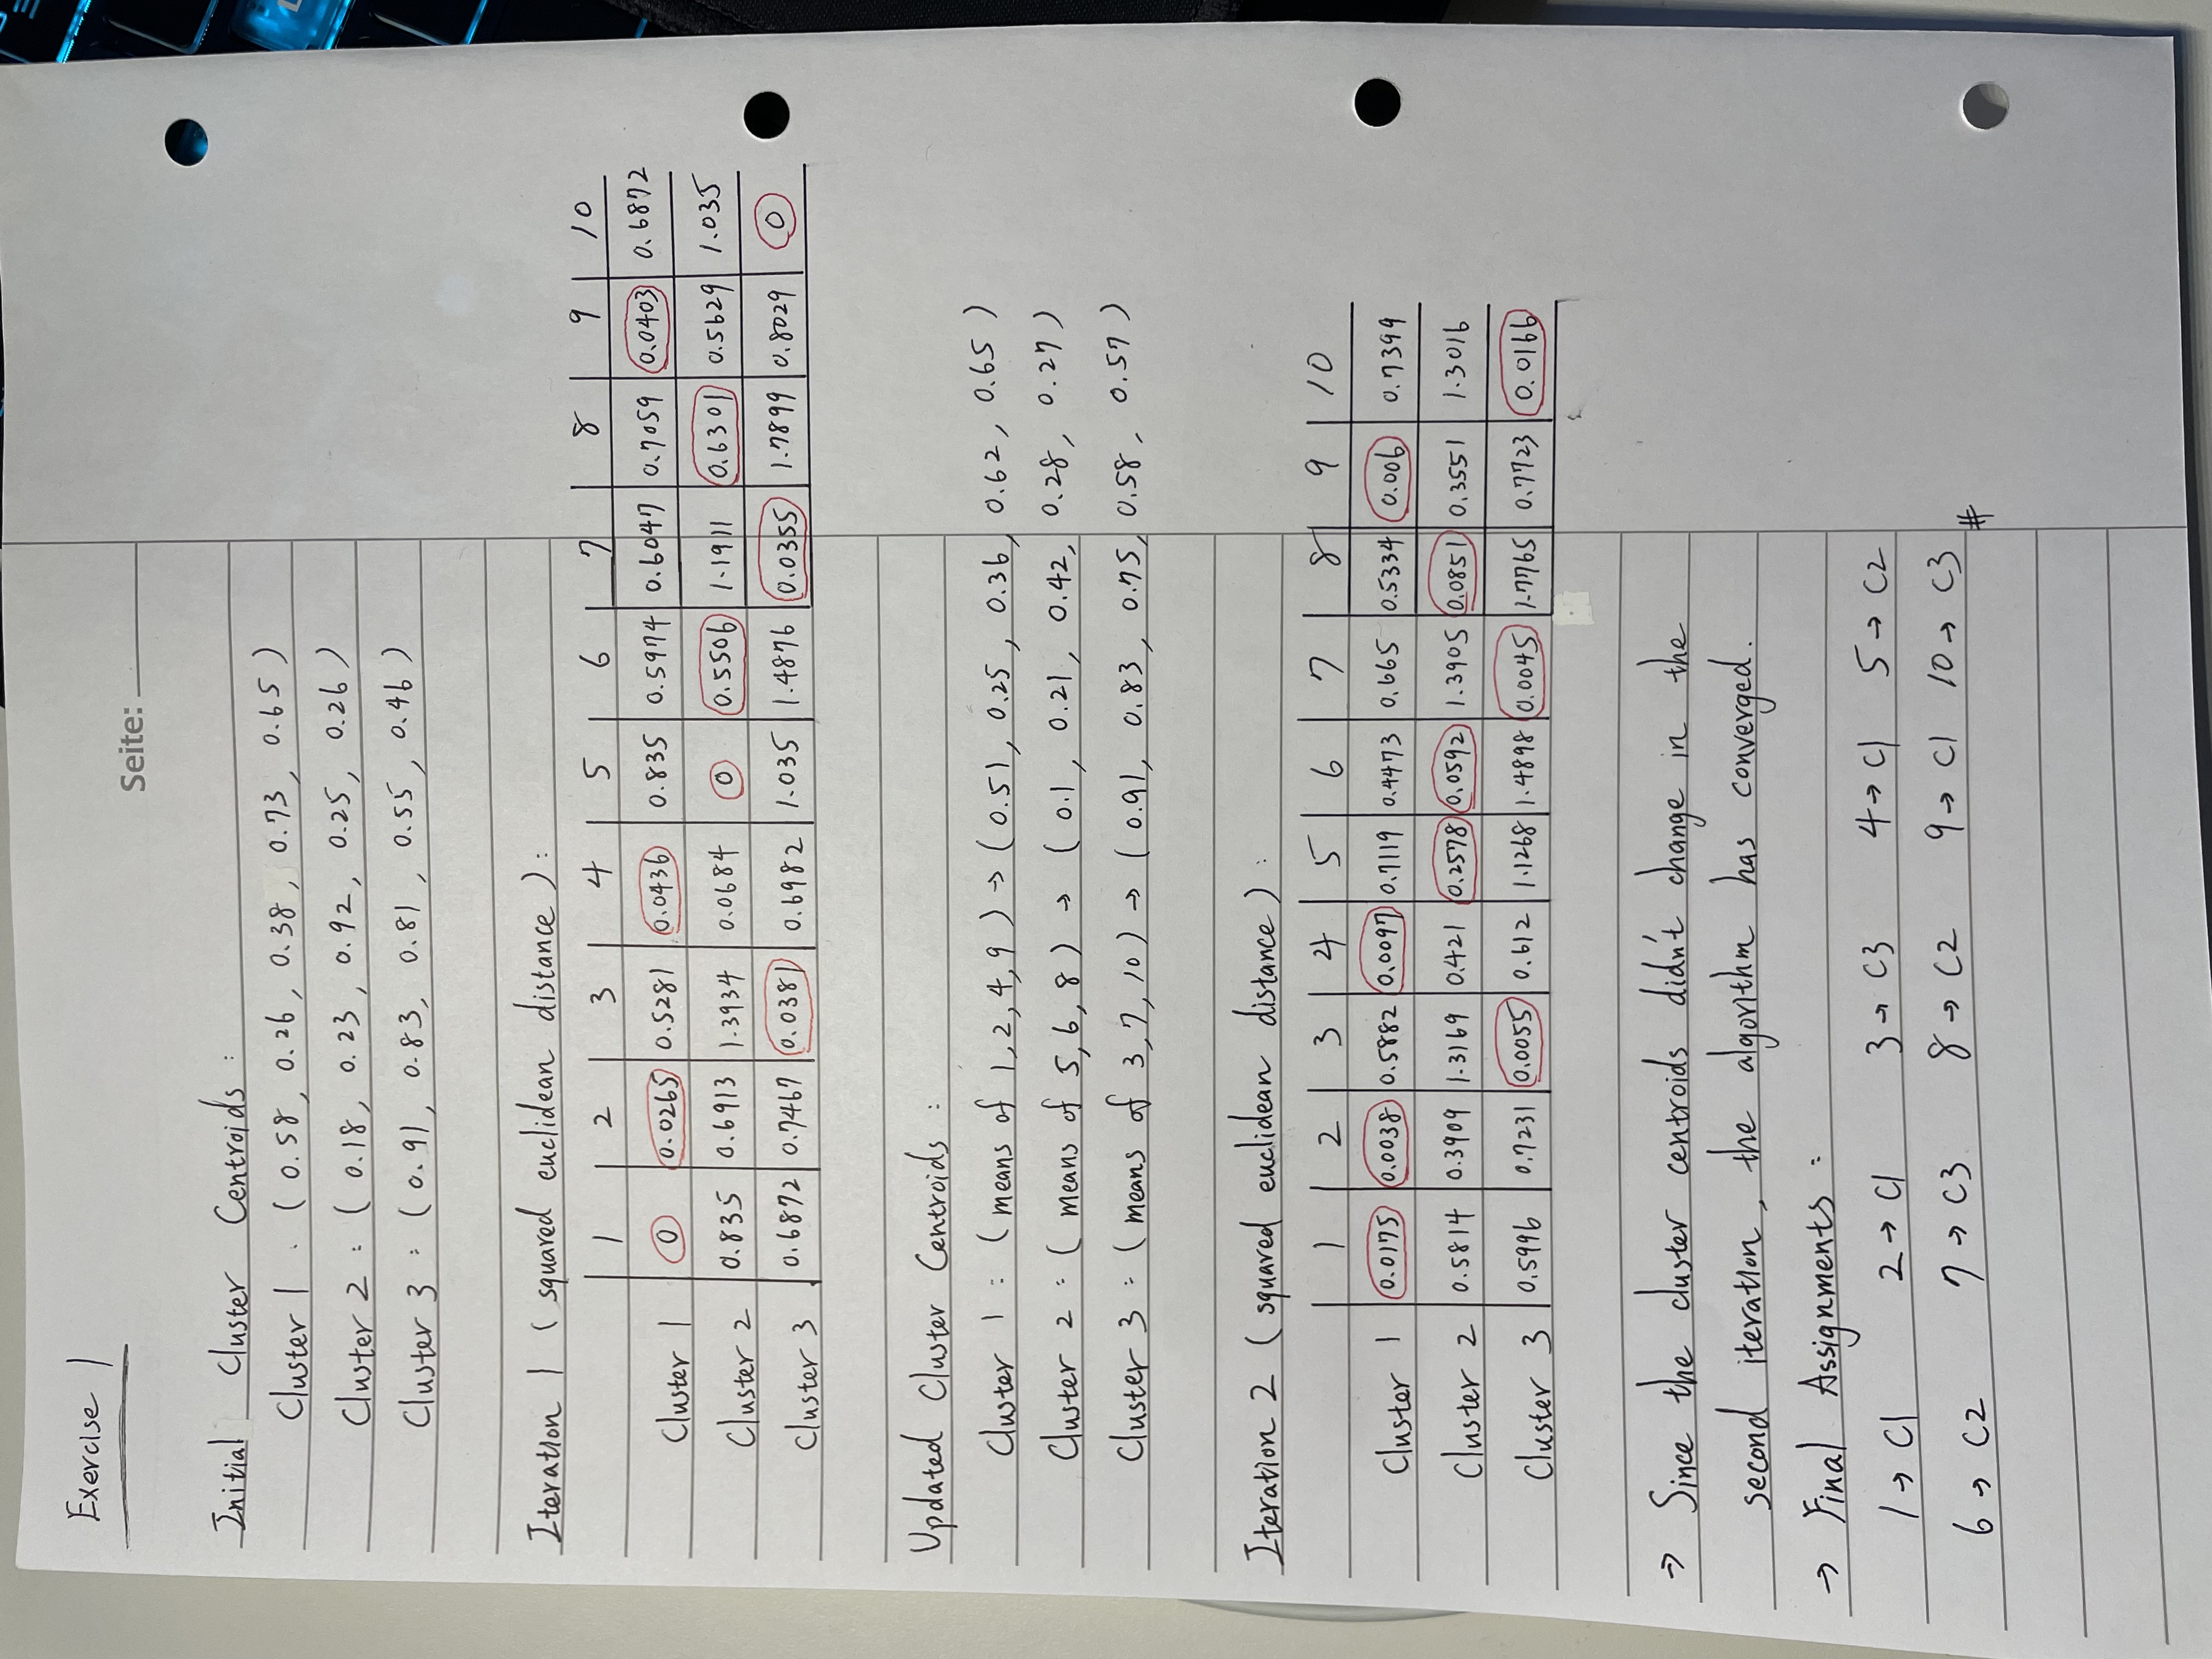 Exercise 1
Seite:
Initial Cluster Centroids :
Cluster 1 : ( 0.58, 0.26, 0.38, 0.73, 0.65 )
Cluster 2 : ( 0.18, 0.23, 0.92, 0.25, 0.26 )
Cluster 3 : ( 0.91, 0.83, 0.81, 0.55, 0.46 )
Iteration 1 ( squared euclidean distance ) :
1 2 3 4 5 6 7 8 9 10
Cluster 1 0 0.0265 0.5281 0.0436 0.835 0.5974 0.6047 0.7059 0.0403 0.6872
Cluster 2 0.835 0.6913 1.3934 0.0684 0 0.5506 1.1911 0.6301 0.5629 1.035
Cluster 3 0.6872 0.7467 0.0381 0.6982 1.035 1.4876 0.0355 1.7899 0.8029 0
Updated Cluster Centroids :
Cluster 1 : ( means of 1, 2, 4, 9 ) → ( 0.51, 0.25, 0.36, 0.62, 0.65 )
Cluster 2 : ( means of 5, 6, 8 ) → ( 0.1, 0.21, 0.42, 0.28, 0.27 )
Cluster 3 : ( means of 3, 7, 10 ) → ( 0.91, 0.83, 0.75, 0.58, 0.57 )
Iteration 2 ( squared euclidean distance ) :
1 2 3 4 5 6 7 8 9 10
Cluster 1 0.0175 0.0038 0.5882 0.0097 0.7119 0.4473 0.665 0.5334 0.006 0.7399
Cluster 2 0.5814 0.3909 1.3169 0.421 0.2578 0.0592 1.3905 0.0851 0.3551 1.3016
Cluster 3 0.5996 0.7231 0.0055 0.612 1.1268 1.4898 0.0045 1.7765 0.7723 0.0166
→ Since the cluster centroids didn't change in the
second iteration, the algorithm has converged.
→ Final Assignments :
1 → C1 2 → C1 3 → C3 4 → C1 5 → C2
6 → C2 7 → C3 8 → C2 9 → C1 10 → C3 #